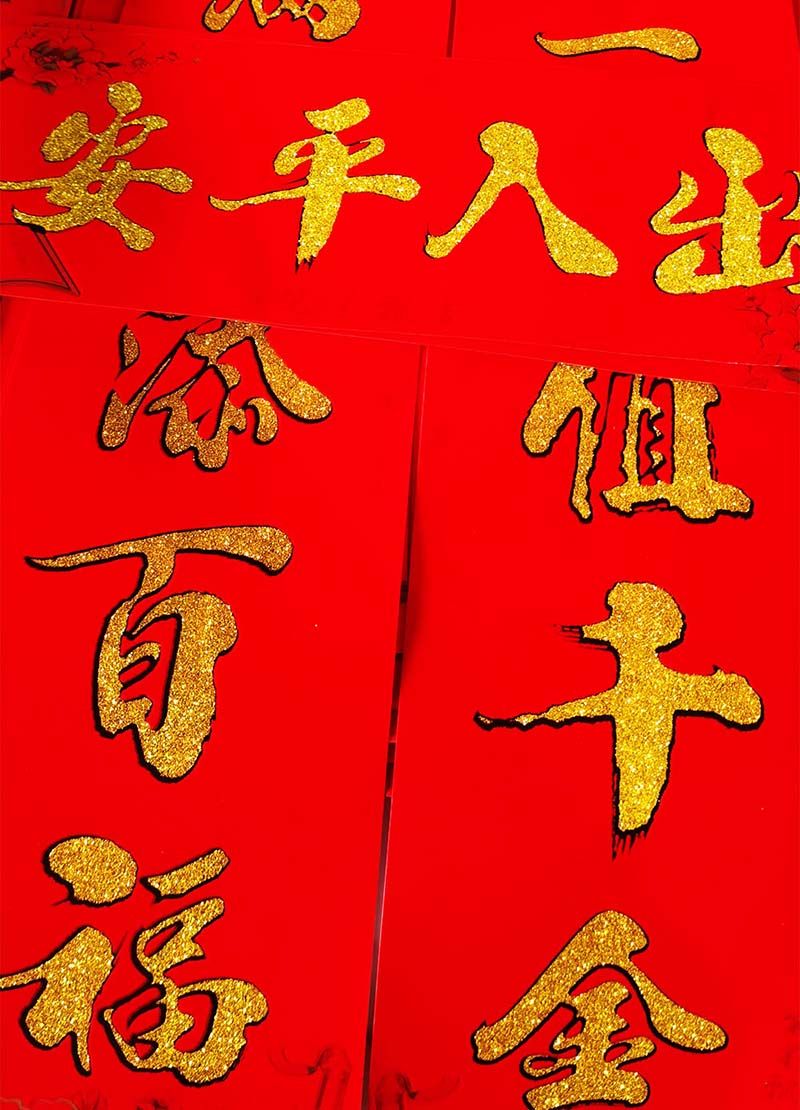 出入平安
一
值千金
添百福